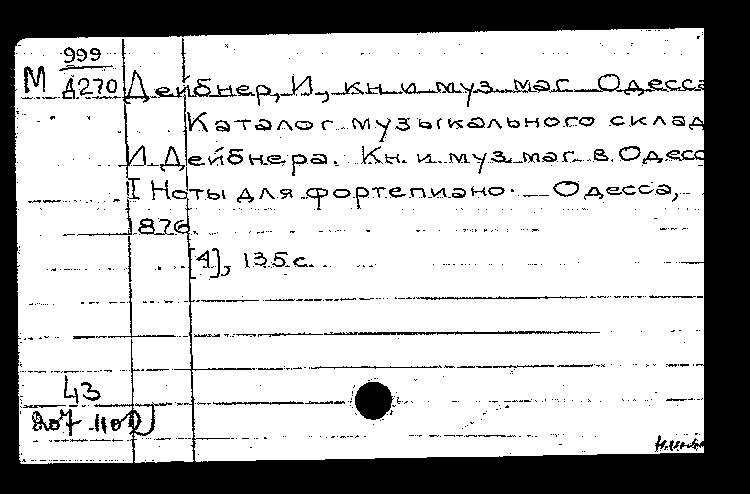 999
М Д270 Дейбнер, И, кн. и муз. маг. Одесса
Каталог музыкального склад
И. Дейбнера. Кн. и муз. маг. в Одесс
I Ноты для фортепиано. — Одесса,
1876.
[4], 135 с.
43
207